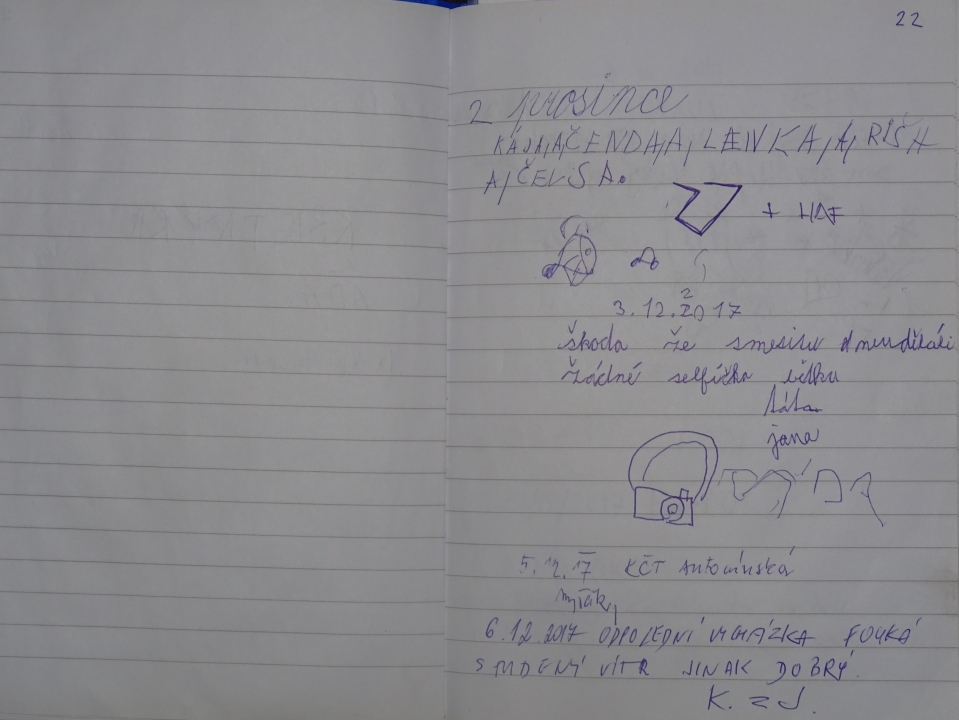 22
2 prosince
KÁJA, A, ČENDA, A, LENKA, A, RIŠA
A, ČELSA.
+ HAF
3.12.2017
škoda že smesisu
žádné selfíčko
táta
jana
5.12.17 KČT Antonínská
6.12.2017 ODPOLEDNÍ VYCHÁZKA FOUKÁ
STUDENÝ VÍTR JINAK DOBRÝ.
K. z J.